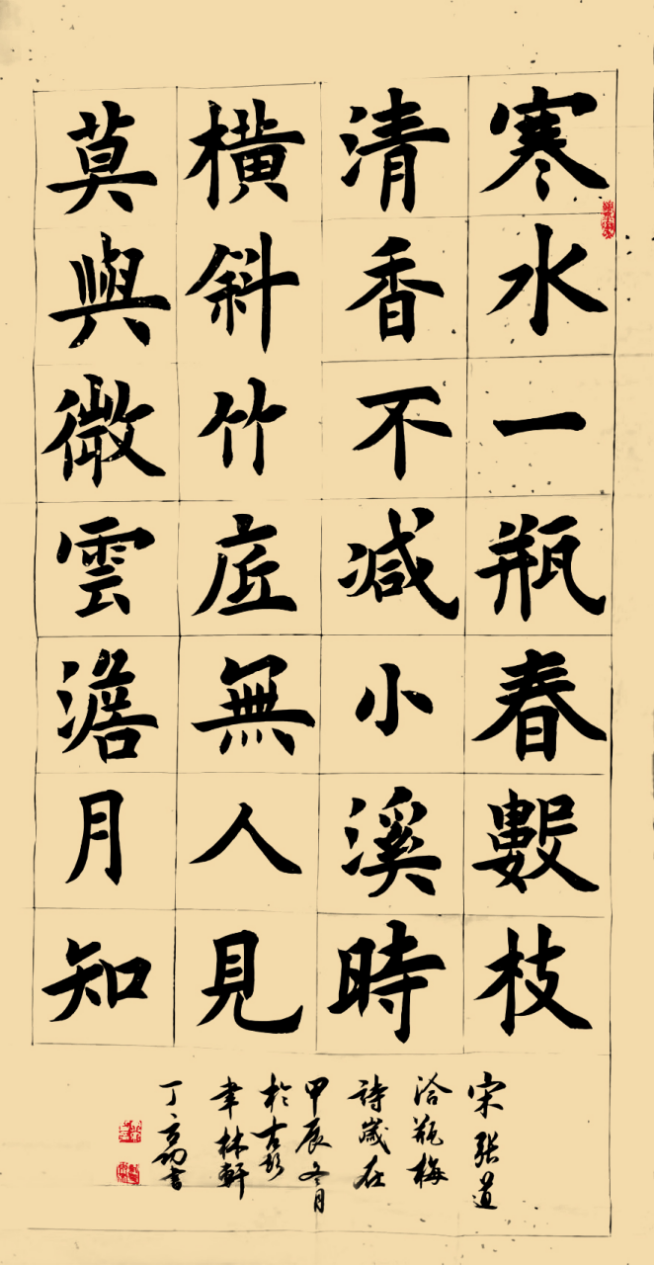 寒水一瓶春數枝
清香不減小溪時
橫斜竹底無人見
莫與微雲澹月知
宋張道
洽瓶梅
詩歲在
甲辰冬月
於古彭
聿林軒
丁方
書